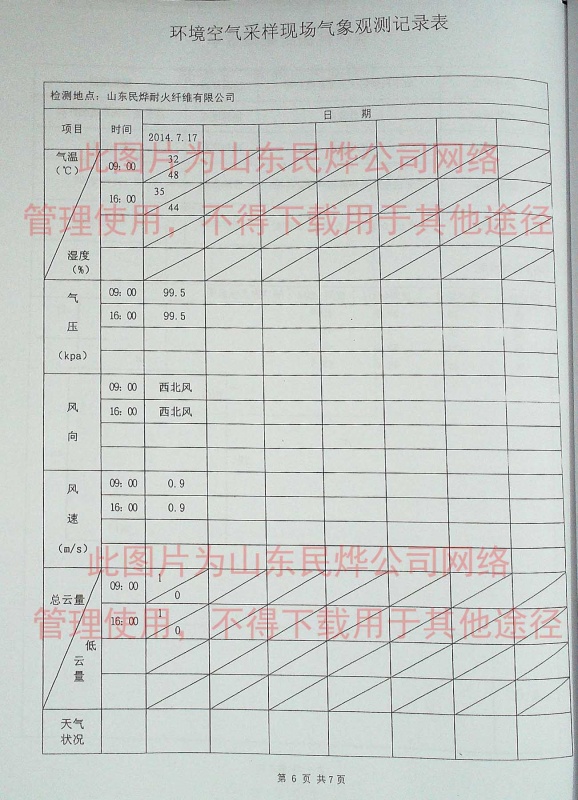 环境空气采样现场气象观测记录表
检测地点：山东民烨耐火纤维有限公司
项目 时间 日 期
2014.7.17
气温（℃） 09：00 32
48
16：00 35
44
湿度（%）
气压（kpa） 09：00 99.5
16：00 99.5
风向 09：00 西北风
16：00 西北风
风速（m/s） 09：00 0.9
16：00 0.9
总云量 09：00 1
0
16：00 1
0
低云量
天气状况
第 6 页 共7页
此图片为山东民烨公司网络
管理使用，不得下载用于其他途径
此图片为山东民烨公司网络
管理使用，不得下载用于其他途径